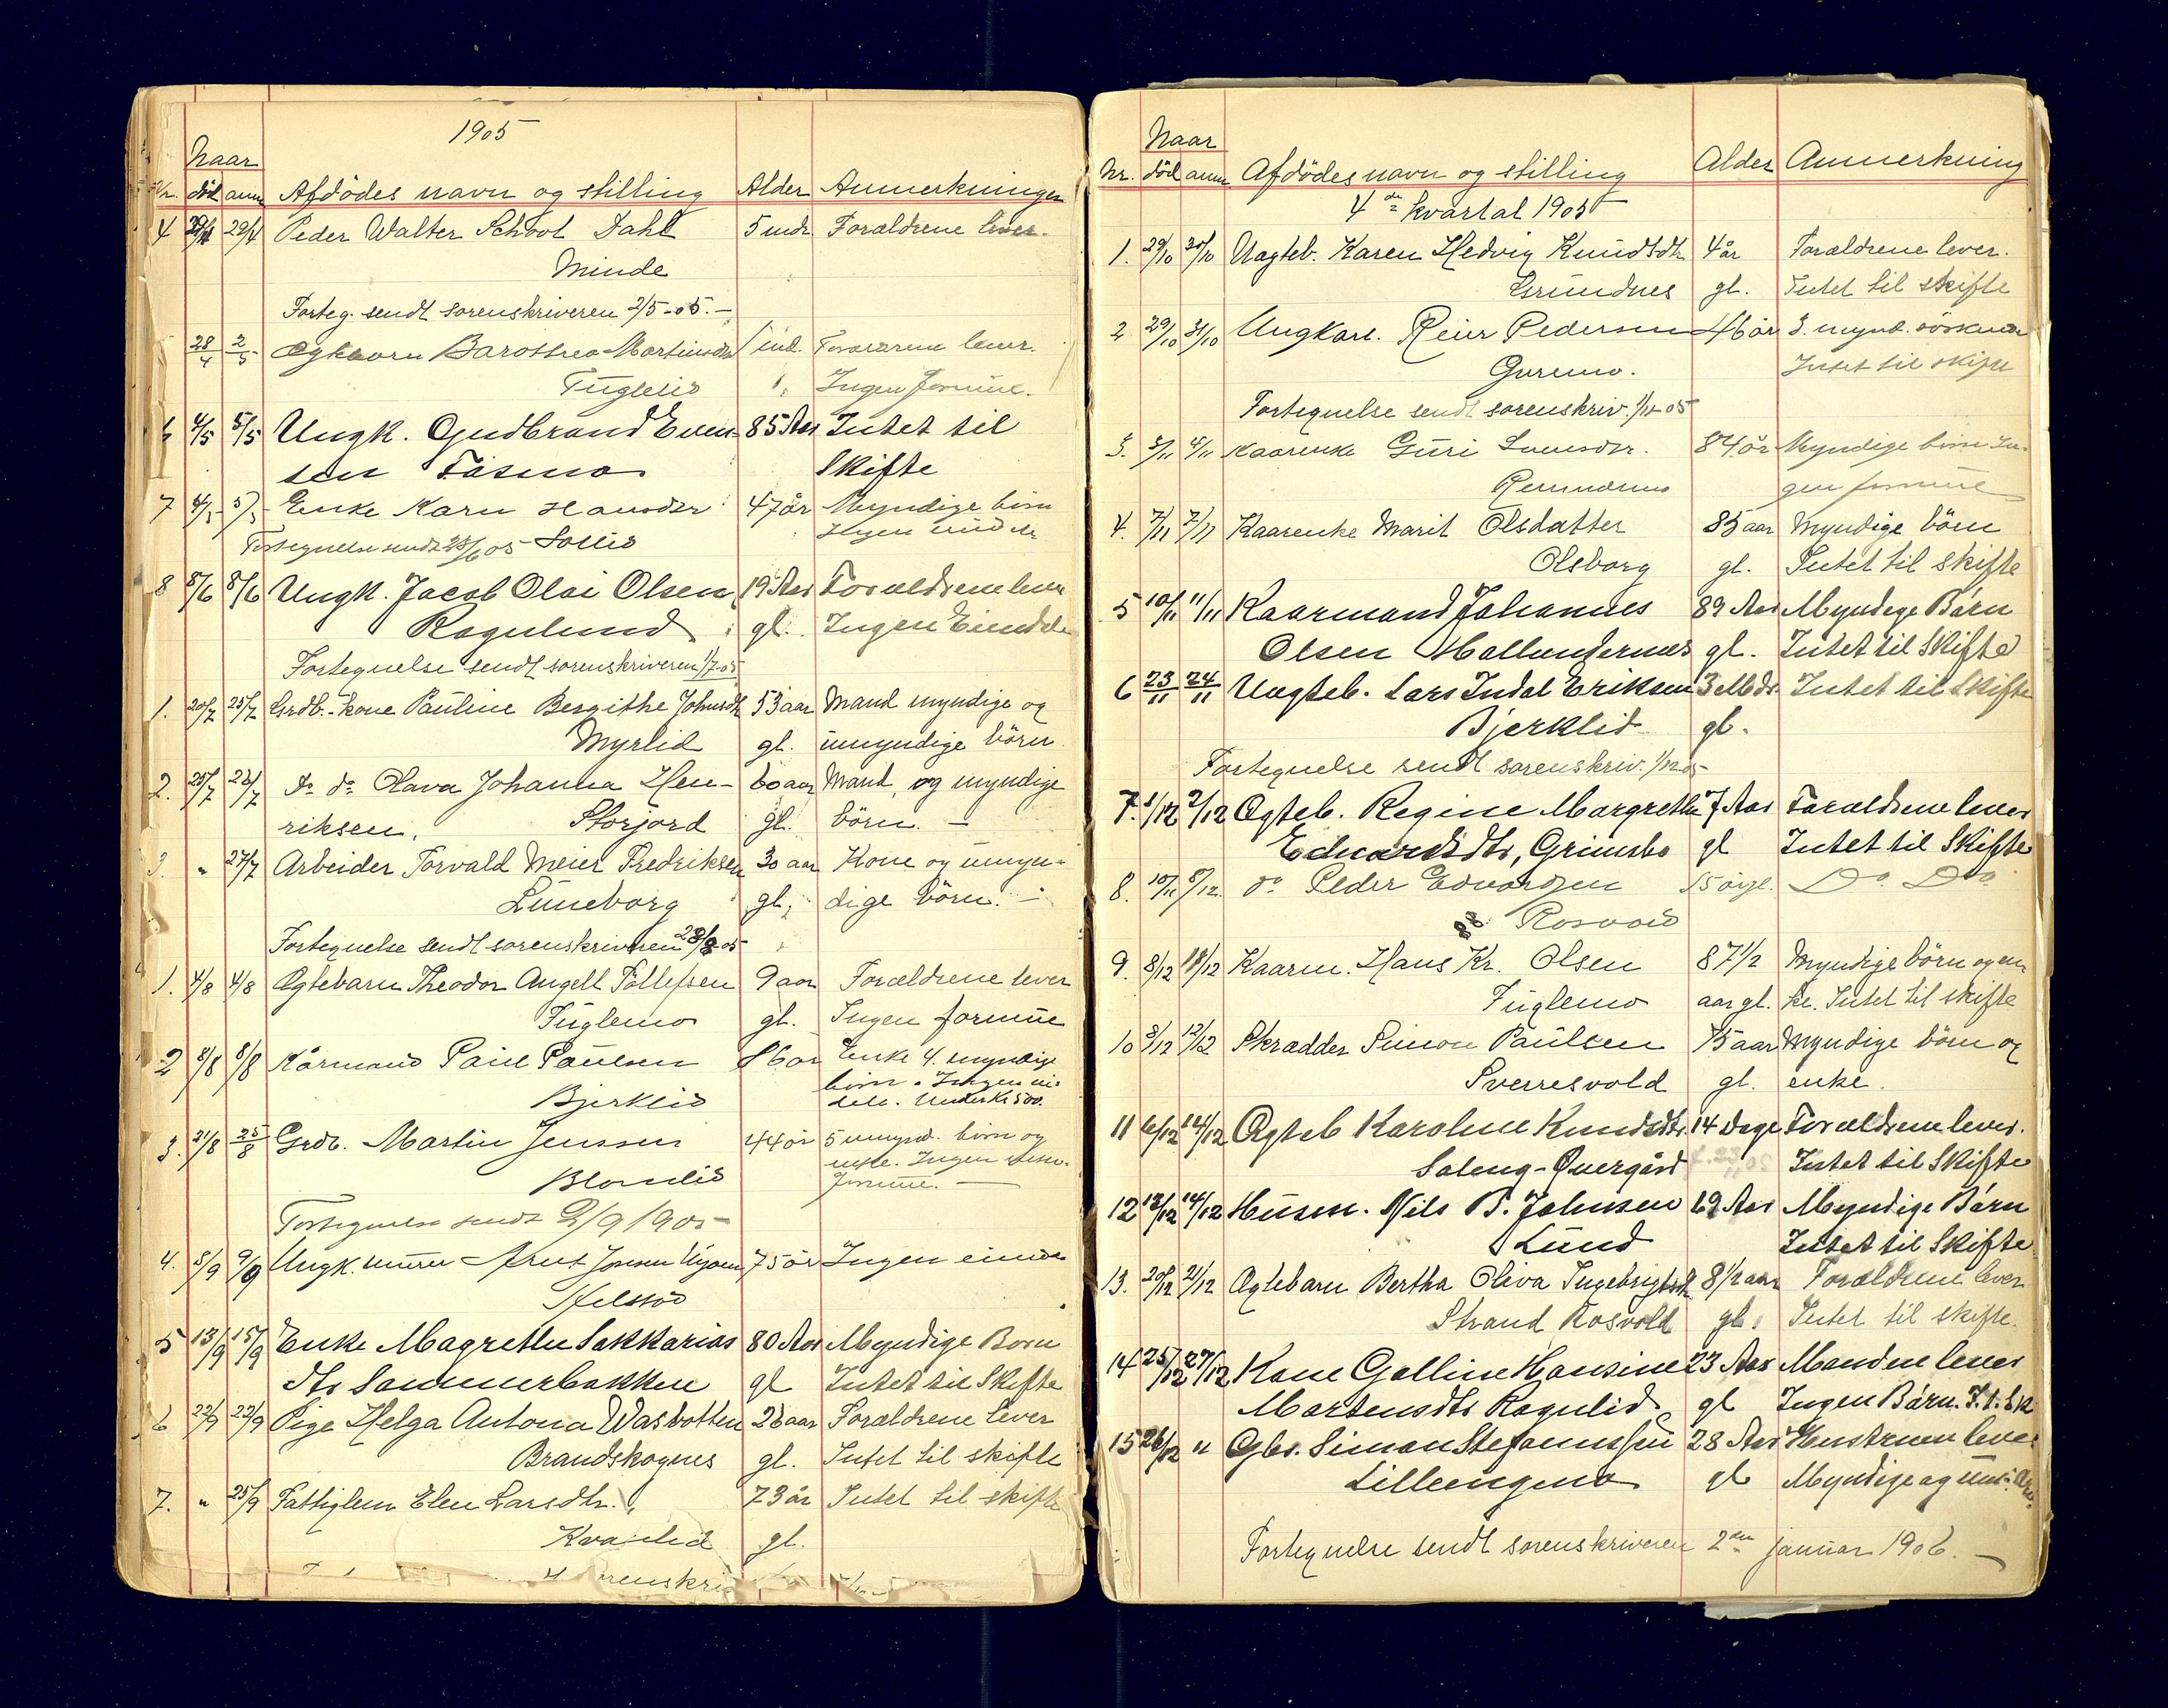 1905
Naar
Nr. död anm Afdödes navn og stilling Alder Anmerkninger
4 29/4 29/4 Peder Walter Schööt Dahl 5 mdr. Forældrene lever.
Minde
Forteg. sendt sorenskriveren 2/5-05. —
28/4 2/5 Ægtebarn Barothea Martinsdtr 1 md. Forældrene lever.
Fuglelid Ingen formue.
6 4/5 5/5 Ungk. Gudbrand Even- 85 Aar Intet til
sen Fosmo Skifte
7 4/5 5/5 Enke Karn Hansdtr 47 år Myndige börn
Fortegnelse sendt 25/6 05 Sollid Ingen
8 5/6 8/6 Ungk. Jacob Olai Olsen 19 Aar Forældrene lever
Rognlund gl. Ingen Eiendele
Fortegnelse sendt sorenskriveren 1/7-05
1. 20/7 25/7 Grdb.-kone Pauline Bergithe Johnsdtr 53 aar Mand myndige og
Myrlid gl. umyndige börn
2. 25/7 26/7 do do Olava Johanna Hen- 60 aar Mand, og myndige
riksen. Storjord gl. börn. —
3. " 27/7 Arbeider Torvald Meier Fredriksen 30 aar Kone og umyn-
Luneborg gl. dige börn. —
Fortegnelse sendt sorenskriveren 28/8-05
1. 4/8 4/8 Ægtebarn Theodor Angell Tollefsen 9 aar Forældrene lever
Fuglemo gl. Ingen formue
2 8/8 8/8 Kårmand Paul Paulsen 86 år Enke 4. myndige
börn. Ingen mi-
Bjerklid dele. Under Kr 500.
3. 21/8 25/8 Grdb. Martin Jenssen 44 år 5 umynd. börn og
enke. Ingen
Blomlid formue. —
Fortegnelse sendt 2/9 1905 —
4. 8/9 9/9 Ungk. murer Arnt Jonsen 75 år Ingen eiendele
5 13/9 15/9 Enke Magrethe Sakkarias 80 Aar Myndige Born
dtr Sommerbakken gl Intet til Skifte
6 22/9 22/9 Pige Helga Antona Wasbotten 26 aar Forældrene lever
Brandskognes gl. Intet til skifte
7. " 25/9 Fattiglem Elen Larsdtr. 73 år Intet til skifte
Kvanlid gl.
renskri
Naar
Nr. död anm Afdödes navn og stilling Alder Anmerkning
4de kvartal 1905
1. 29/10 30/10 Uægteb. Karen Hedvig Knudsdtr 4 år Forældrene lever.
Grundnes gl. Intet til skifte
2 29/10 31/10 Ungkarl. Reier Pedersen 46 år 3. mynd. söskende
Guremo. Intet til skifte
Fortegnelse sendt sorenskriv. 1/11-05
3. 3/11 4/11 Kaarenke Guri Svensdtr. 84 år Myndige börn In-
gen formue
4. 7/11 7/11 Kaarenke Marit Olsdatter 85 aar Myndige börn
Olsborg gl. Intet til skifte
5 10/11 11/11 Kaarmand Johannes 89 Aar Myndige Börn
Olsen Hollendernes gl. Intet til Skifte
6 23/11 24/11 Uægteb. Lars Indal Eriksen 3 Mdr. Intet til Skifte
Bjerklid gl.
Fortegnelse sendt sorenskriv. 1/12 05
7. 1/12 2/12 Ægteb. Regine Margrethe 7 Aar Forældrene lever
Edvardsdtr, Grimsbo gl Intet til Skifte
8. 10/11 8/12. do Peder Edvardsen 15 år gl. Do Do
Rosvold
9. 8/12 18/12 Kaarm. Hans Kr. Olsen 87 1/2 Myndige börn og en-
Fuglemo aar gl. ke. Intet til skifte
10 8/12 12/12 Skrædder Simon Paulsen 75 aar Myndige börn og
Sverresvold gl. enke.
11 6/12 14/12 Ægteb Karoline Knudsdtr. 14 Dage Forældrene lever.
Saleng-Övergård Intet til Skifte
12 13/12 14/12 Husm. Nils P. Johnsen 69 Aar Myndige Börn
Lund Intet til Skifte
13. 20/12 21/12 Ægtebarn Bertha Oliva Ingebrigtsdtr 8 1/2 aar Forældrene lever
Strand Rosvold gl. Intet til skifte.
14 25/12 27/12 Kone Galline Hansine 23 Aar Manden lever
Martensdtr Rognlid gl Ingen Börn. I. t. Sk
15 26/12 " Gbr. Simon Stefanussen 28 Aar Hustruen lever
Lilleengmo gl Myndige og
Fortegnelse sendt sorenskriveren 2den januar 1906. —